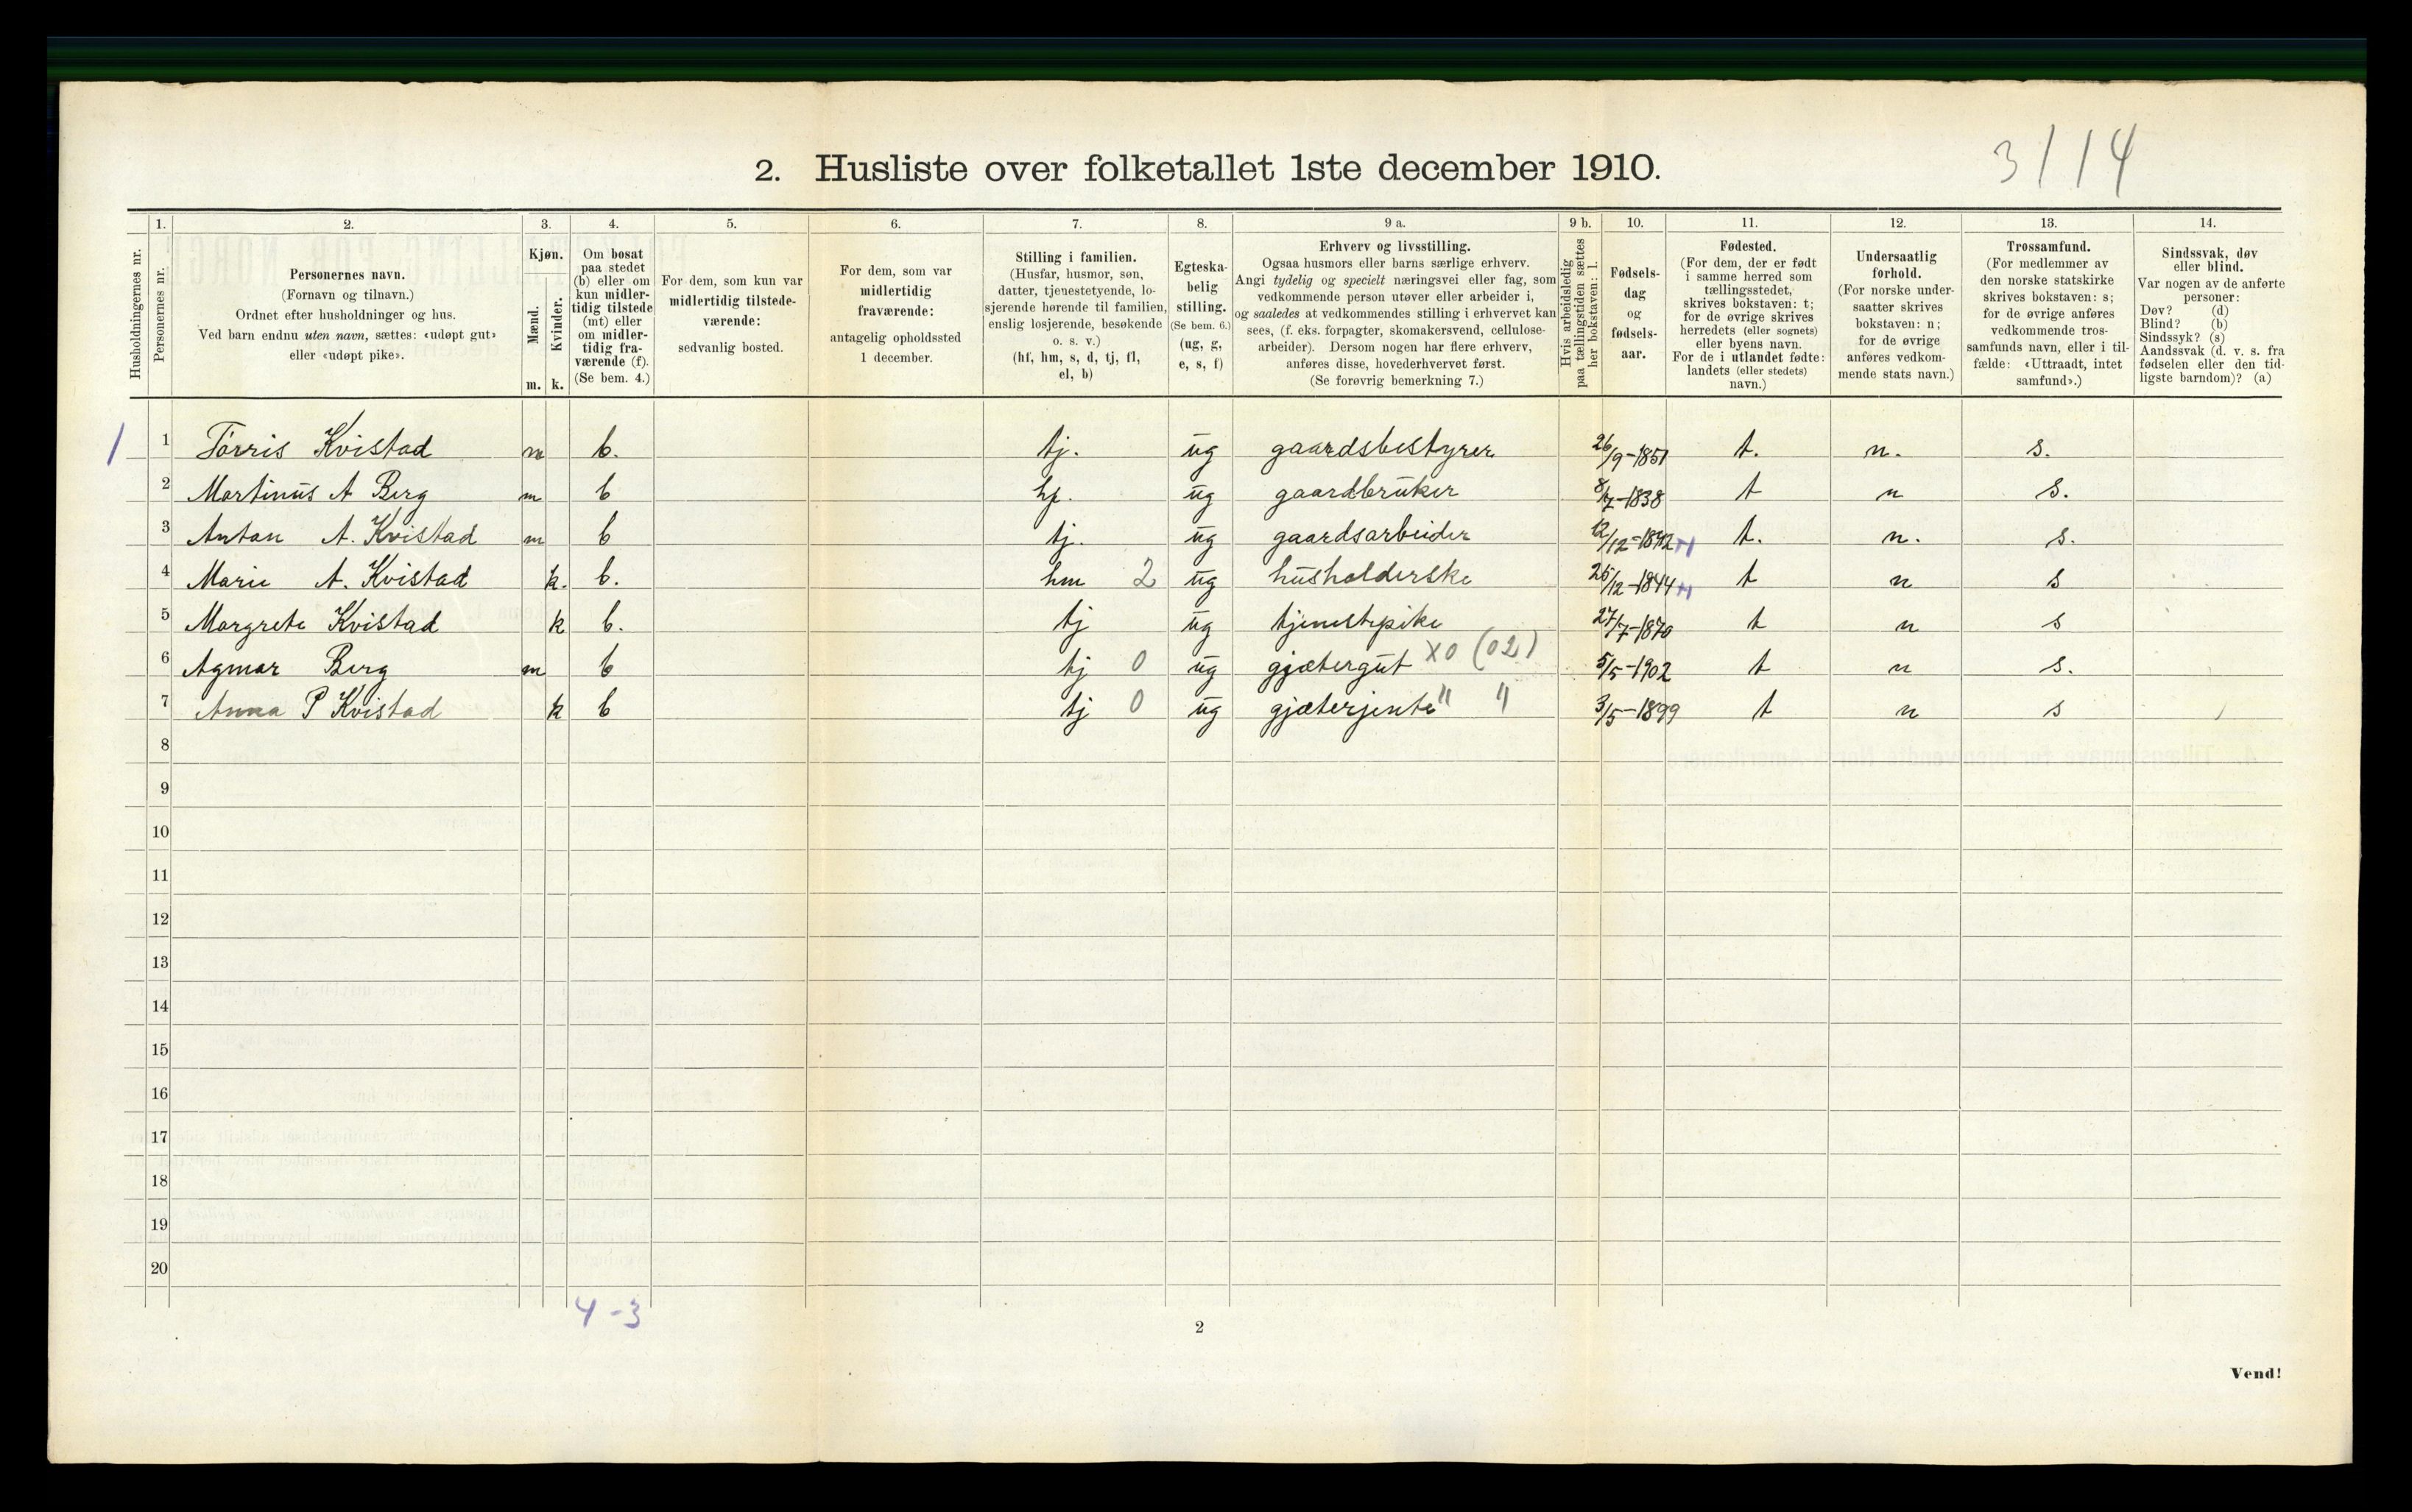 3/14
2. Husliste over folketallet 1ste december 1910.
1. 2. 3. 4. 5. 6. 7. 8. 9 a. 9 b. 10. 11. 12. 13. 14.
Husholdningernes nr.
Personernes nr.
Personernes navn.
(Fornavn og tilnavn.)
Ordnet efter husholdninger og hus.
Ved barn endnu uten navn, sættes: «udøpt gut»
eller «udøpt pike».
Kjøn.
Mænd.
Kvinder.
m. k.
Om bosat
paa stedet
(b) eller om
kun midler-
tidig tilstede
(mt) eller
om midler-
tidig fra-
værende (f).
(Se bem. 4.)
For dem, som kun var
midlertidig tilstede-
værende:
sedvanlig bosted.
For dem, som var
midlertidig
fraværende:
antagelig opholdssted
1 december.
Stilling i familien.
(Husfar, husmor, søn,
datter, tjenestetyende, lo-
sjerende hørende til familien,
enslig losjerende, besøkende
o. s. v.)
(hf, hm, s, d, tj, fl,
el, b)
Egteska-
belig
stilling.
(Se bem. 6.)
(ug, g,
e, s, f)
Erhverv og livsstilling.
Ogsaa husmors eller barns særlige erhverv.
Angi tydelig og specielt næringsvei eller fag, som
vedkommende person utøver eller arbeider i,
og saaledes at vedkommendes stilling i erhvervet kan
sees, (f. eks. forpagter, skomakersvend, cellulose-
arbeider). Dersom nogen har flere erhverv,
anføres disse, hovederhvervet først.
(Se forøvrig bemerkning 7.)
Hvis arbeidsledig
paa tællingstiden sættes
her bokstaven: l.
Fødsels-
dag
og
fødsels-
aar.
Fødested.
(For dem, der er født
i samme herred som
tællingsstedet,
skrives bokstaven: t;
for de øvrige skrives
herredets (eller sognets)
eller byens navn.
For de i utlandet fødte:
landets (eller stedets)
navn.)
Undersaatlig
forhold.
(For norske under-
saatter skrives
bokstaven: n;
for de øvrige
anføres vedkom-
mende stats navn.)
Trossamfund.
(For medlemmer av
den norske statskirke
skrives bokstaven: s;
for de øvrige anføres
vedkommende tros-
samfunds navn, eller i til-
fælde: «Uttraadt, intet
samfund».)
Sindssvak, døv
eller blind.
Var nogen av de anførte
personer:
Døv? (d)
Blind? (b)
Sindssyk? (s)
Aandssvak (d. v. s. fra
fødselen eller den tid-
ligste barndom)? (a)
1 1 Tørris Kvistad m b. tj. ug gaardsbestyrer 26/9-1851 t. n. s.
2 Martinus A Berg m b ug gaardbruker 8/7-1838 t n s.
3 Anton A. Kvistad m b tj. ug gaardsarbeider 12/12-1842 t. n. s.
4 Marie A. Kvistad k. b. hm 2 ug husholderske 25/12-1844 t n s
5 Margrete Kvistad k b. tj ug tjenestepike 27/7-1870 t n s
6 Agmar Berg m b tj 0 ug gjætergut X0 (02) 5/5-1902 t n s.
7 Anna P Kvistad k b tj 0 ug gjæterjente " " 3/5-1899 t n s
8
9
10
11
12
13
14
15
16
17
18
19
20
4-3
2
Vend!